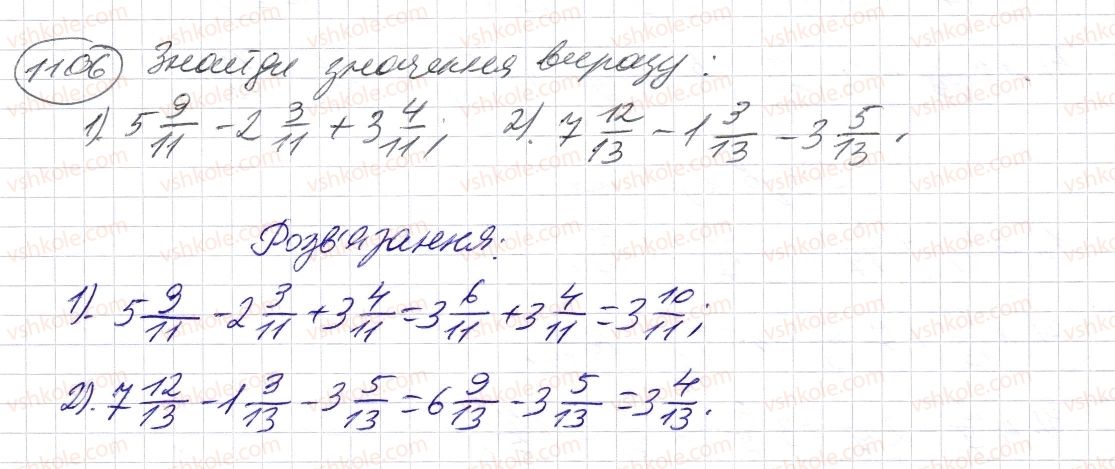 1106 Знайди значення виразу:
1). 5 9/11 - 2 3/11 + 3 4/11; 2). 7 12/13 - 1 3/13 - 3 5/13.
Розв'язання:
1). 5 9/11 - 2 3/11 + 3 4/11 = 3 6/11 + 3 4/11 = 3 10/11;
2). 7 12/13 - 1 3/13 - 3 5/13 = 6 9/13 - 3 5/13 = 3 4/13.